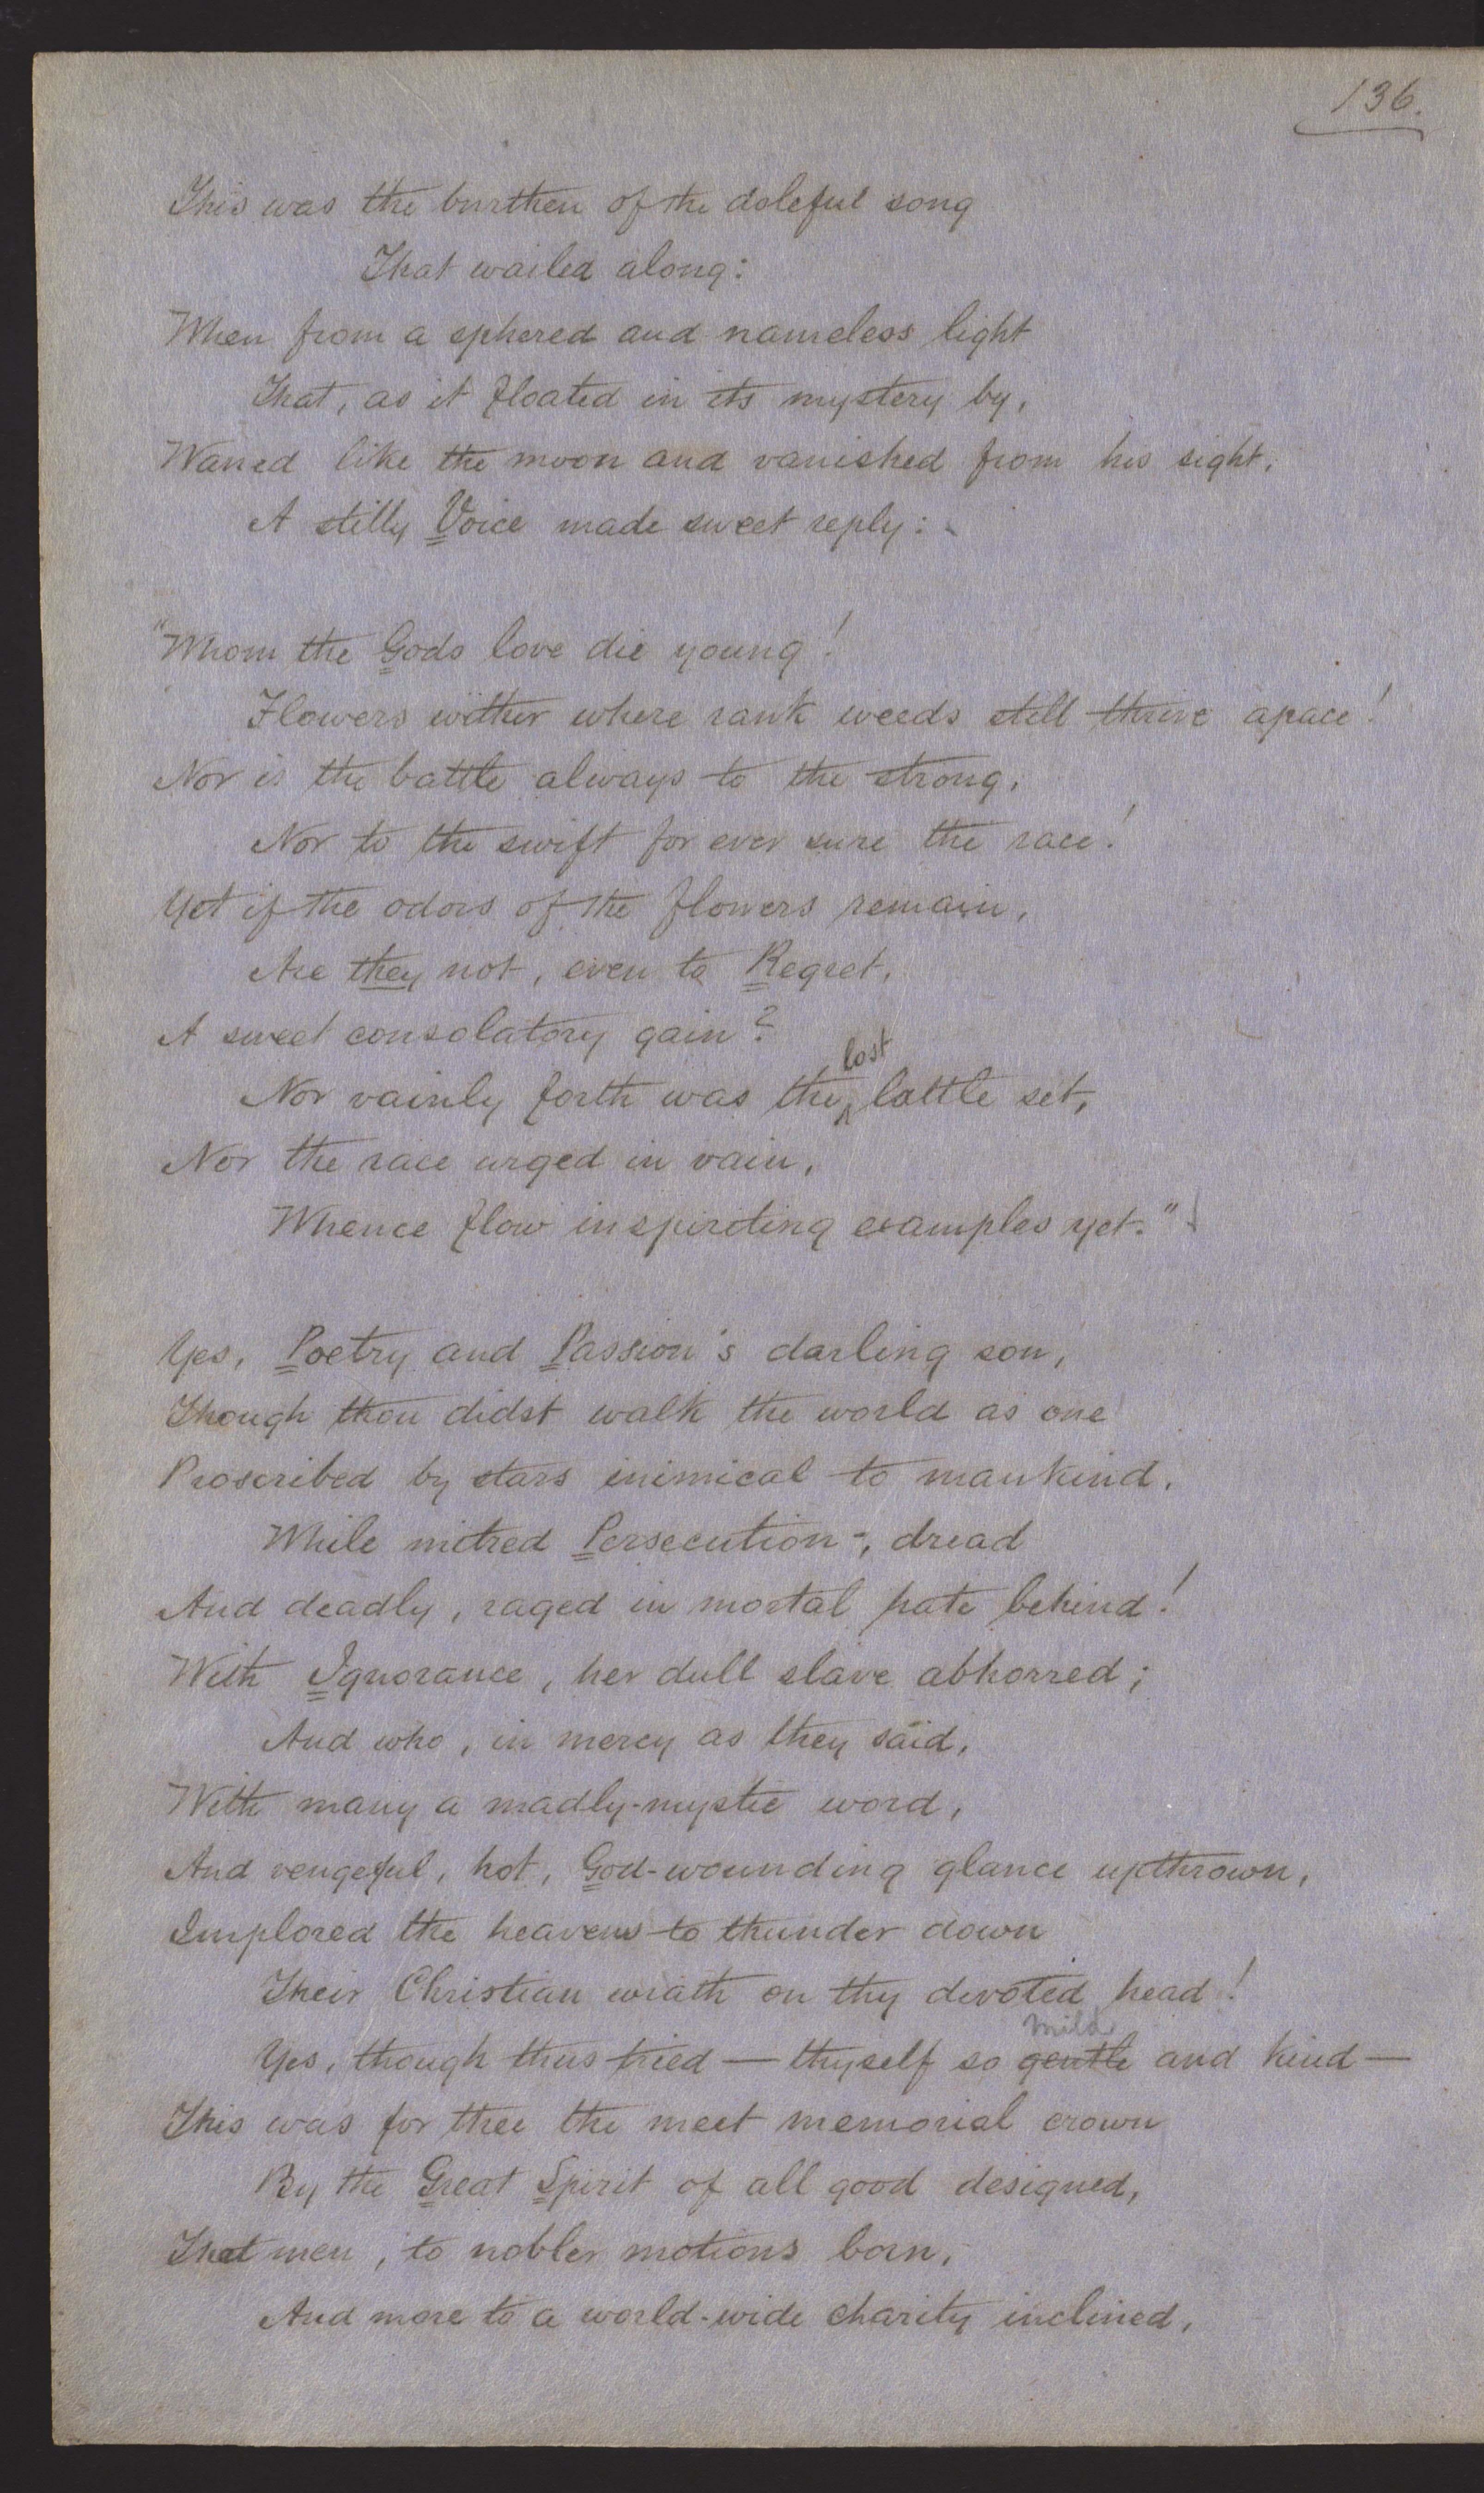 136.
This was the burthen of the doleful song
That wailed along:
When from a sphered and nameless light
That, as it floated in its mystery by,
Waned like the moon and vanished from his sight,
A stilly Voice made sweet reply:-
"Whom the Gods love die young!
Flowers wither where rank weeds still thrive apace!
Nor is the battle always to the strong,
Nor to the swift for ever sure the race!
Yet if the odors of the flowers remain,
Are they not, even to Regret,
A sweet consolatory gain?
Nor vainly forth was the lost battle set,
Nor the race urged in vain,
Whence flow inspiriting examples yet."
Yes, Poetry and Passion's darling son,
Though thou didst walk the world as one
Proscribed by stars inimical to mankind,
While mitred Persecution-, dread
And deadly, raged in mortal hate behind!
With Ignorance, her dull slave abhorred;
And who, in mercy as they said,
With many a madly-mystic word,
And vengeful, hot, God-wounding glance upthrown,
Implored the heavens to thunder down
Their Christian wrath on thy devoted head!
mild
Yes, though thus tried — thyself so gentle and kind —
This was for thee the meet memorial crown
By the Great Spirit of all good designed,
That men, to nobler motions born,
And more to a world-wide charity inclined,